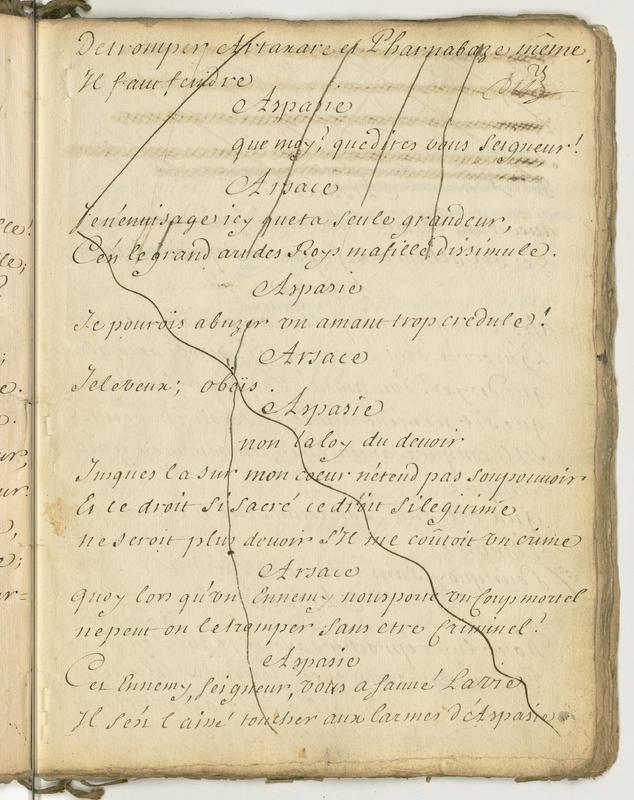 Detromper Artaxare et Pharnabaze même.
Il faut feindre
Aspasie
que moy? que dites vous Seigneur!
Arsace
Je n'enuisage icy que ta seule grandeur,
C'en le grand art des Roys ma fille, dissimule.
Aspasie
Je pourois abuzer vn amant trop credule!
Arsace
Je le veux; obeis.
Aspasie
non la loy du devoir
Jusques la sur mon coeur n'étend pas son pouuoir
Et ce droit si sacré ce droit si legitime
ne seroit plus devoir s'Il me coûtoit vn crime
Arsace
Quoy lors qu'vn Ennemy nous porte vn Coup mortel
ne peut on le tromper sans etre Criminel?
Aspasie
Cet Ennemy, seigneur, vous a sauué La vie
Il s'en l aissé toucher aux larmes d'Aspasie